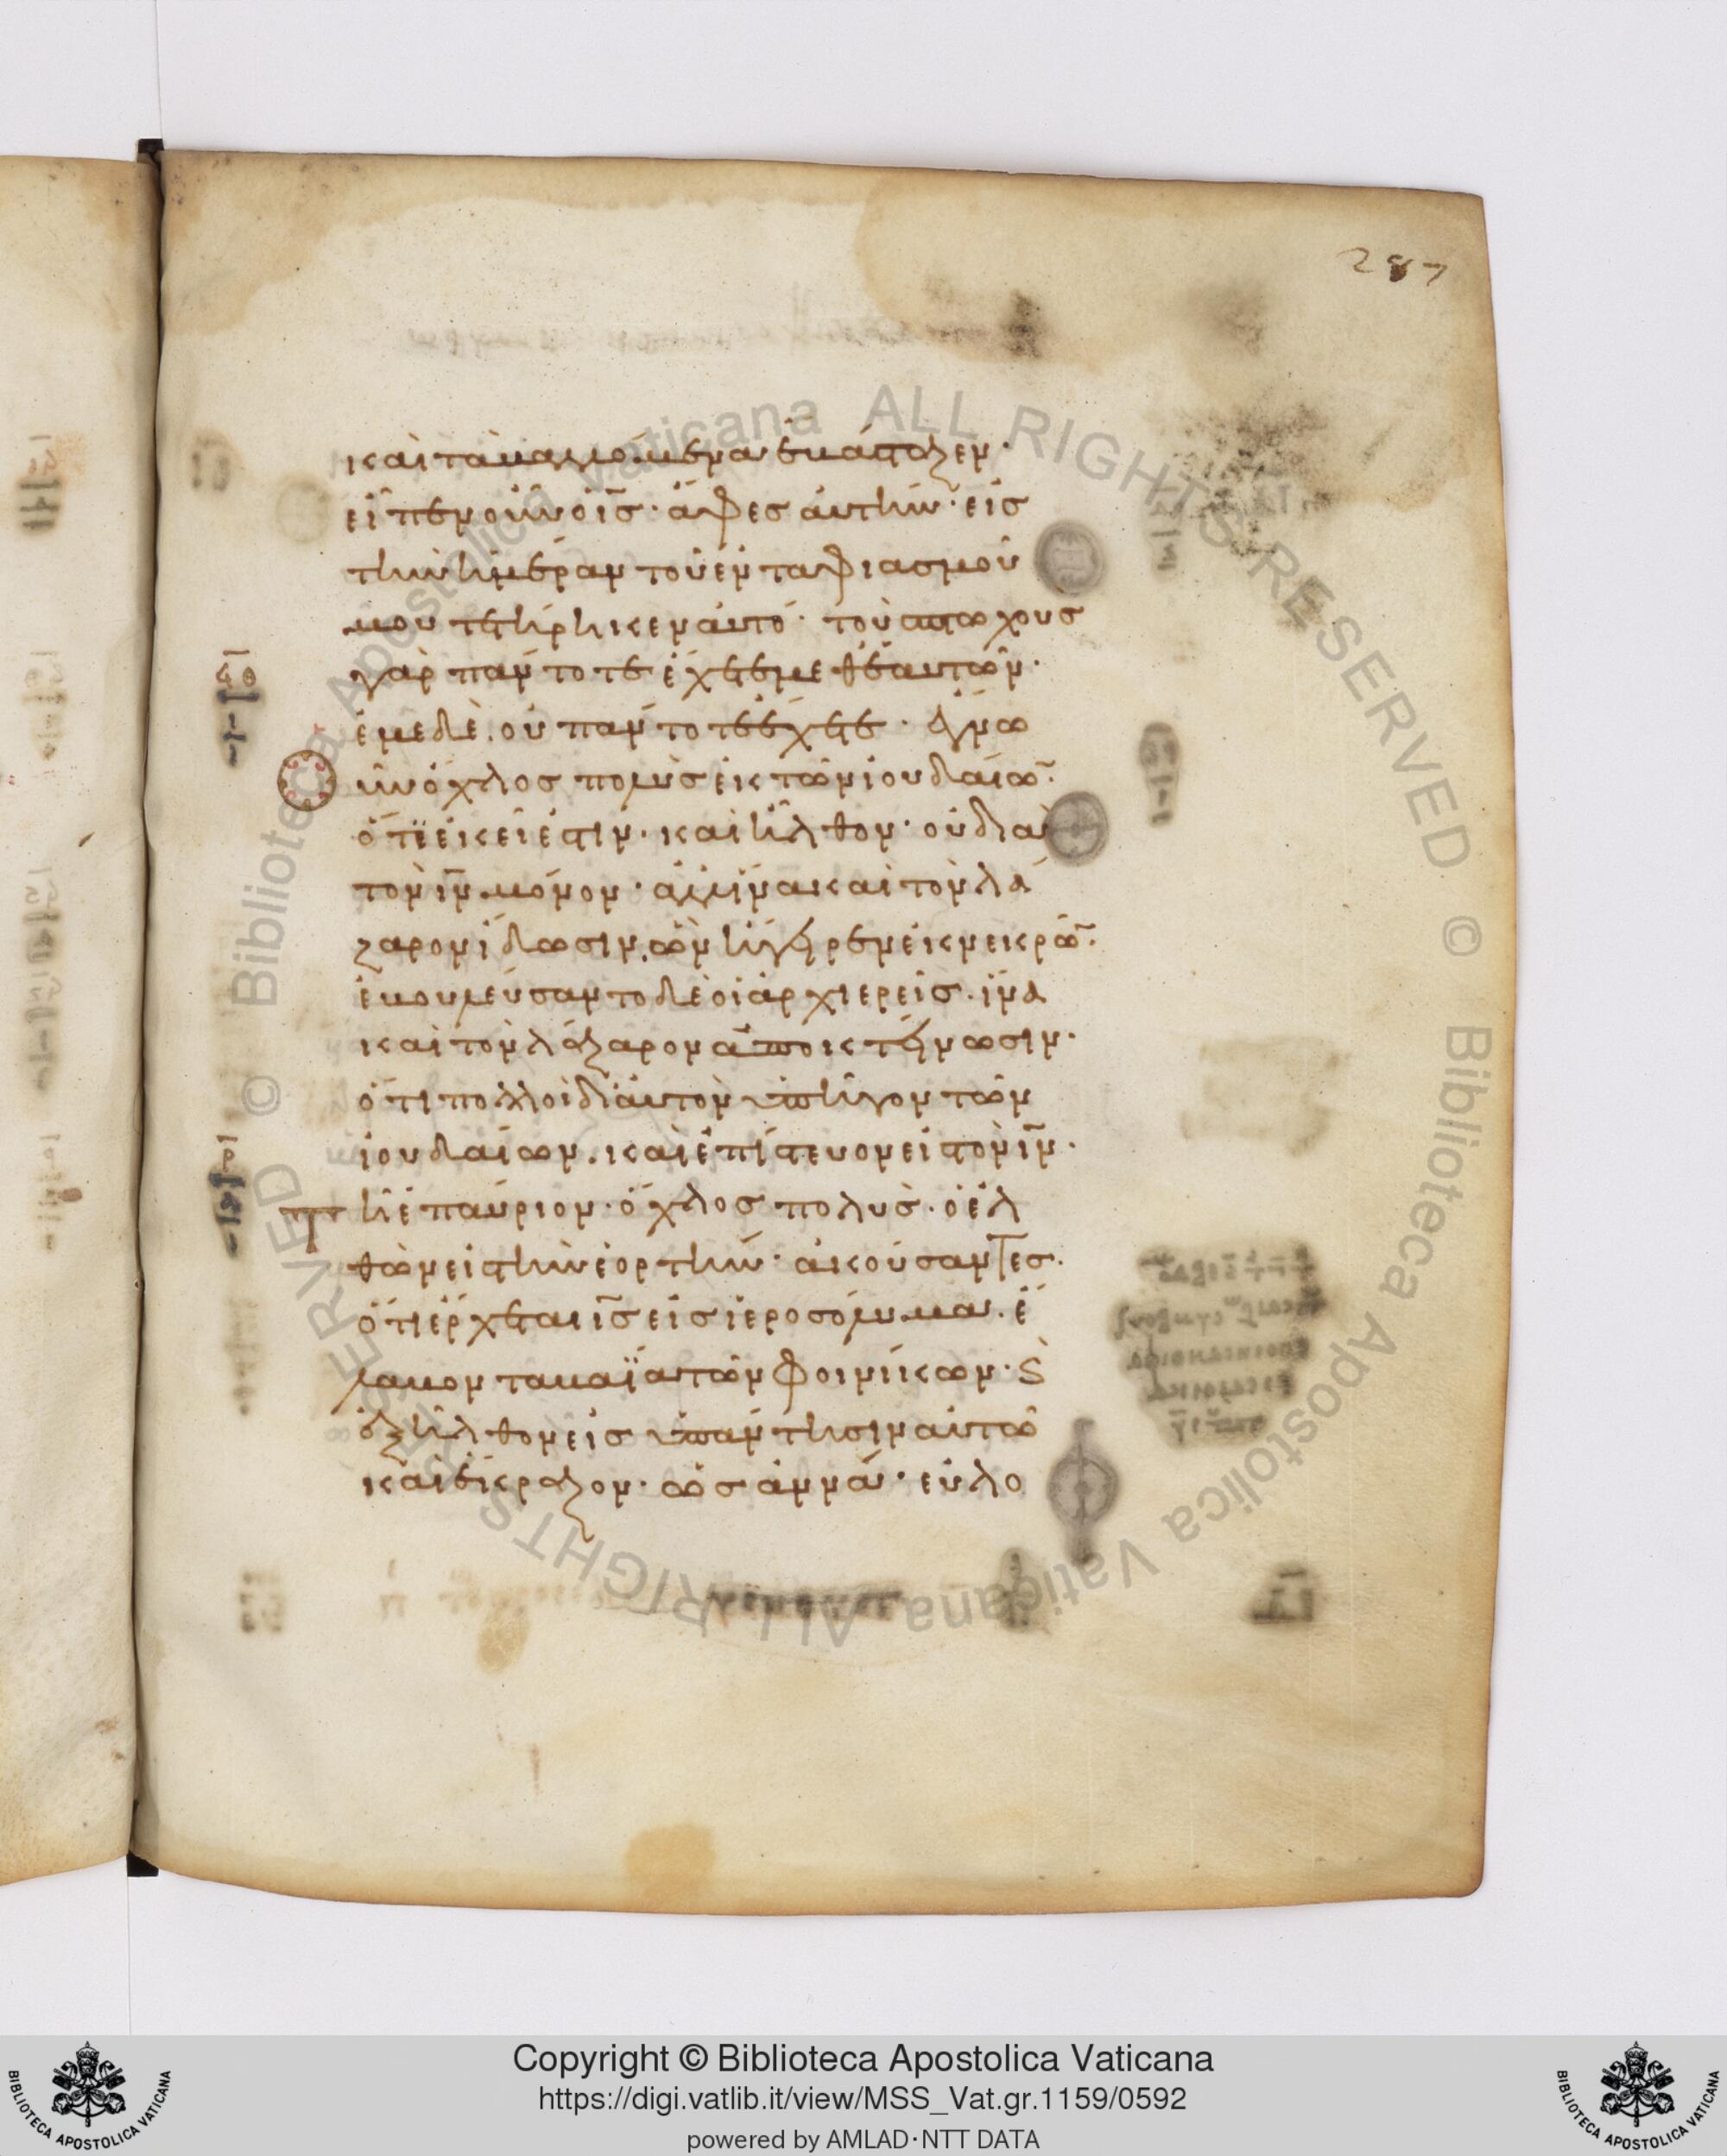 287
καὶ τὰ βαλλόμενα ἐβάσταζεν·
εἶπεν οὖν ὁ ις̅· ἄφες αὐτήν· εἰς
τὴν ἡμέραν τοῦ ἐνταφιασμοῦ
μου τετήρηκεν αὐτό· τοὺς πτωχοὺς
γὰρ πάντοτε ἔχετε μεθ' ἑαυτῶν·
ἐμὲ δὲ, οὐ πάντοτε ἔχετε· ἔγνω
οὖν ὄχλος πολὺς ἐκ τῶν ἰουδαίω̅·
ὅτι ἐκεῖ ἐστιν· καὶ ἦλθον· οὐ διὰ
τὸν ιν̅ μόνον· ἀλλ' ἵνα καὶ τὸν λά
ζαρον ἴδωσιν, ὃν ἤγειρεν ἐκ νεκρῶ̅·
ἐβουλεύσαντο δὲ οἱ ἀρχιερεῖς· ἵνα
καὶ τὸν λάζαρον ἀποκτείνωσιν·
ὅτι πολλοὶ δι' αὐτὸν ὑπῆγον τῶν
ἰουδαίων. καὶ ἐπίστευον εἰς τὸν ιν̅·
Τῇ ἐπαύριον· ὄχλος πολὺς· ὁ ἐλ
θὼν εἰς τὴν ἑορτήν· ἀκούσαντες·
ὅτι ἔρχεται ις̅ εἰς ἱεροσόλυμα· ἔ
λαβον τὰ βαΐα τῶν φοινίκων· ϗ
ἐξῆλθον εἰς ὑπάντησιν αὐτῷ
καὶ ἔκραζον· ὡσαννά· εὐλο
Copyright © Biblioteca Apostolica Vaticana
https://digi.vatlib.it/view/MSS_Vat.gr.1159/0592
powered by AMLAD·NTT DATA
BIBLIOTECA APOSTOLICA VATICANA
BIBLIOTECA APOSTOLICA VATICANA
© Biblioteca Apostolica Vaticana ALL RIGHTS RESERVED © Biblioteca Apostolica Vaticana ALL RIGHTS RESERVED